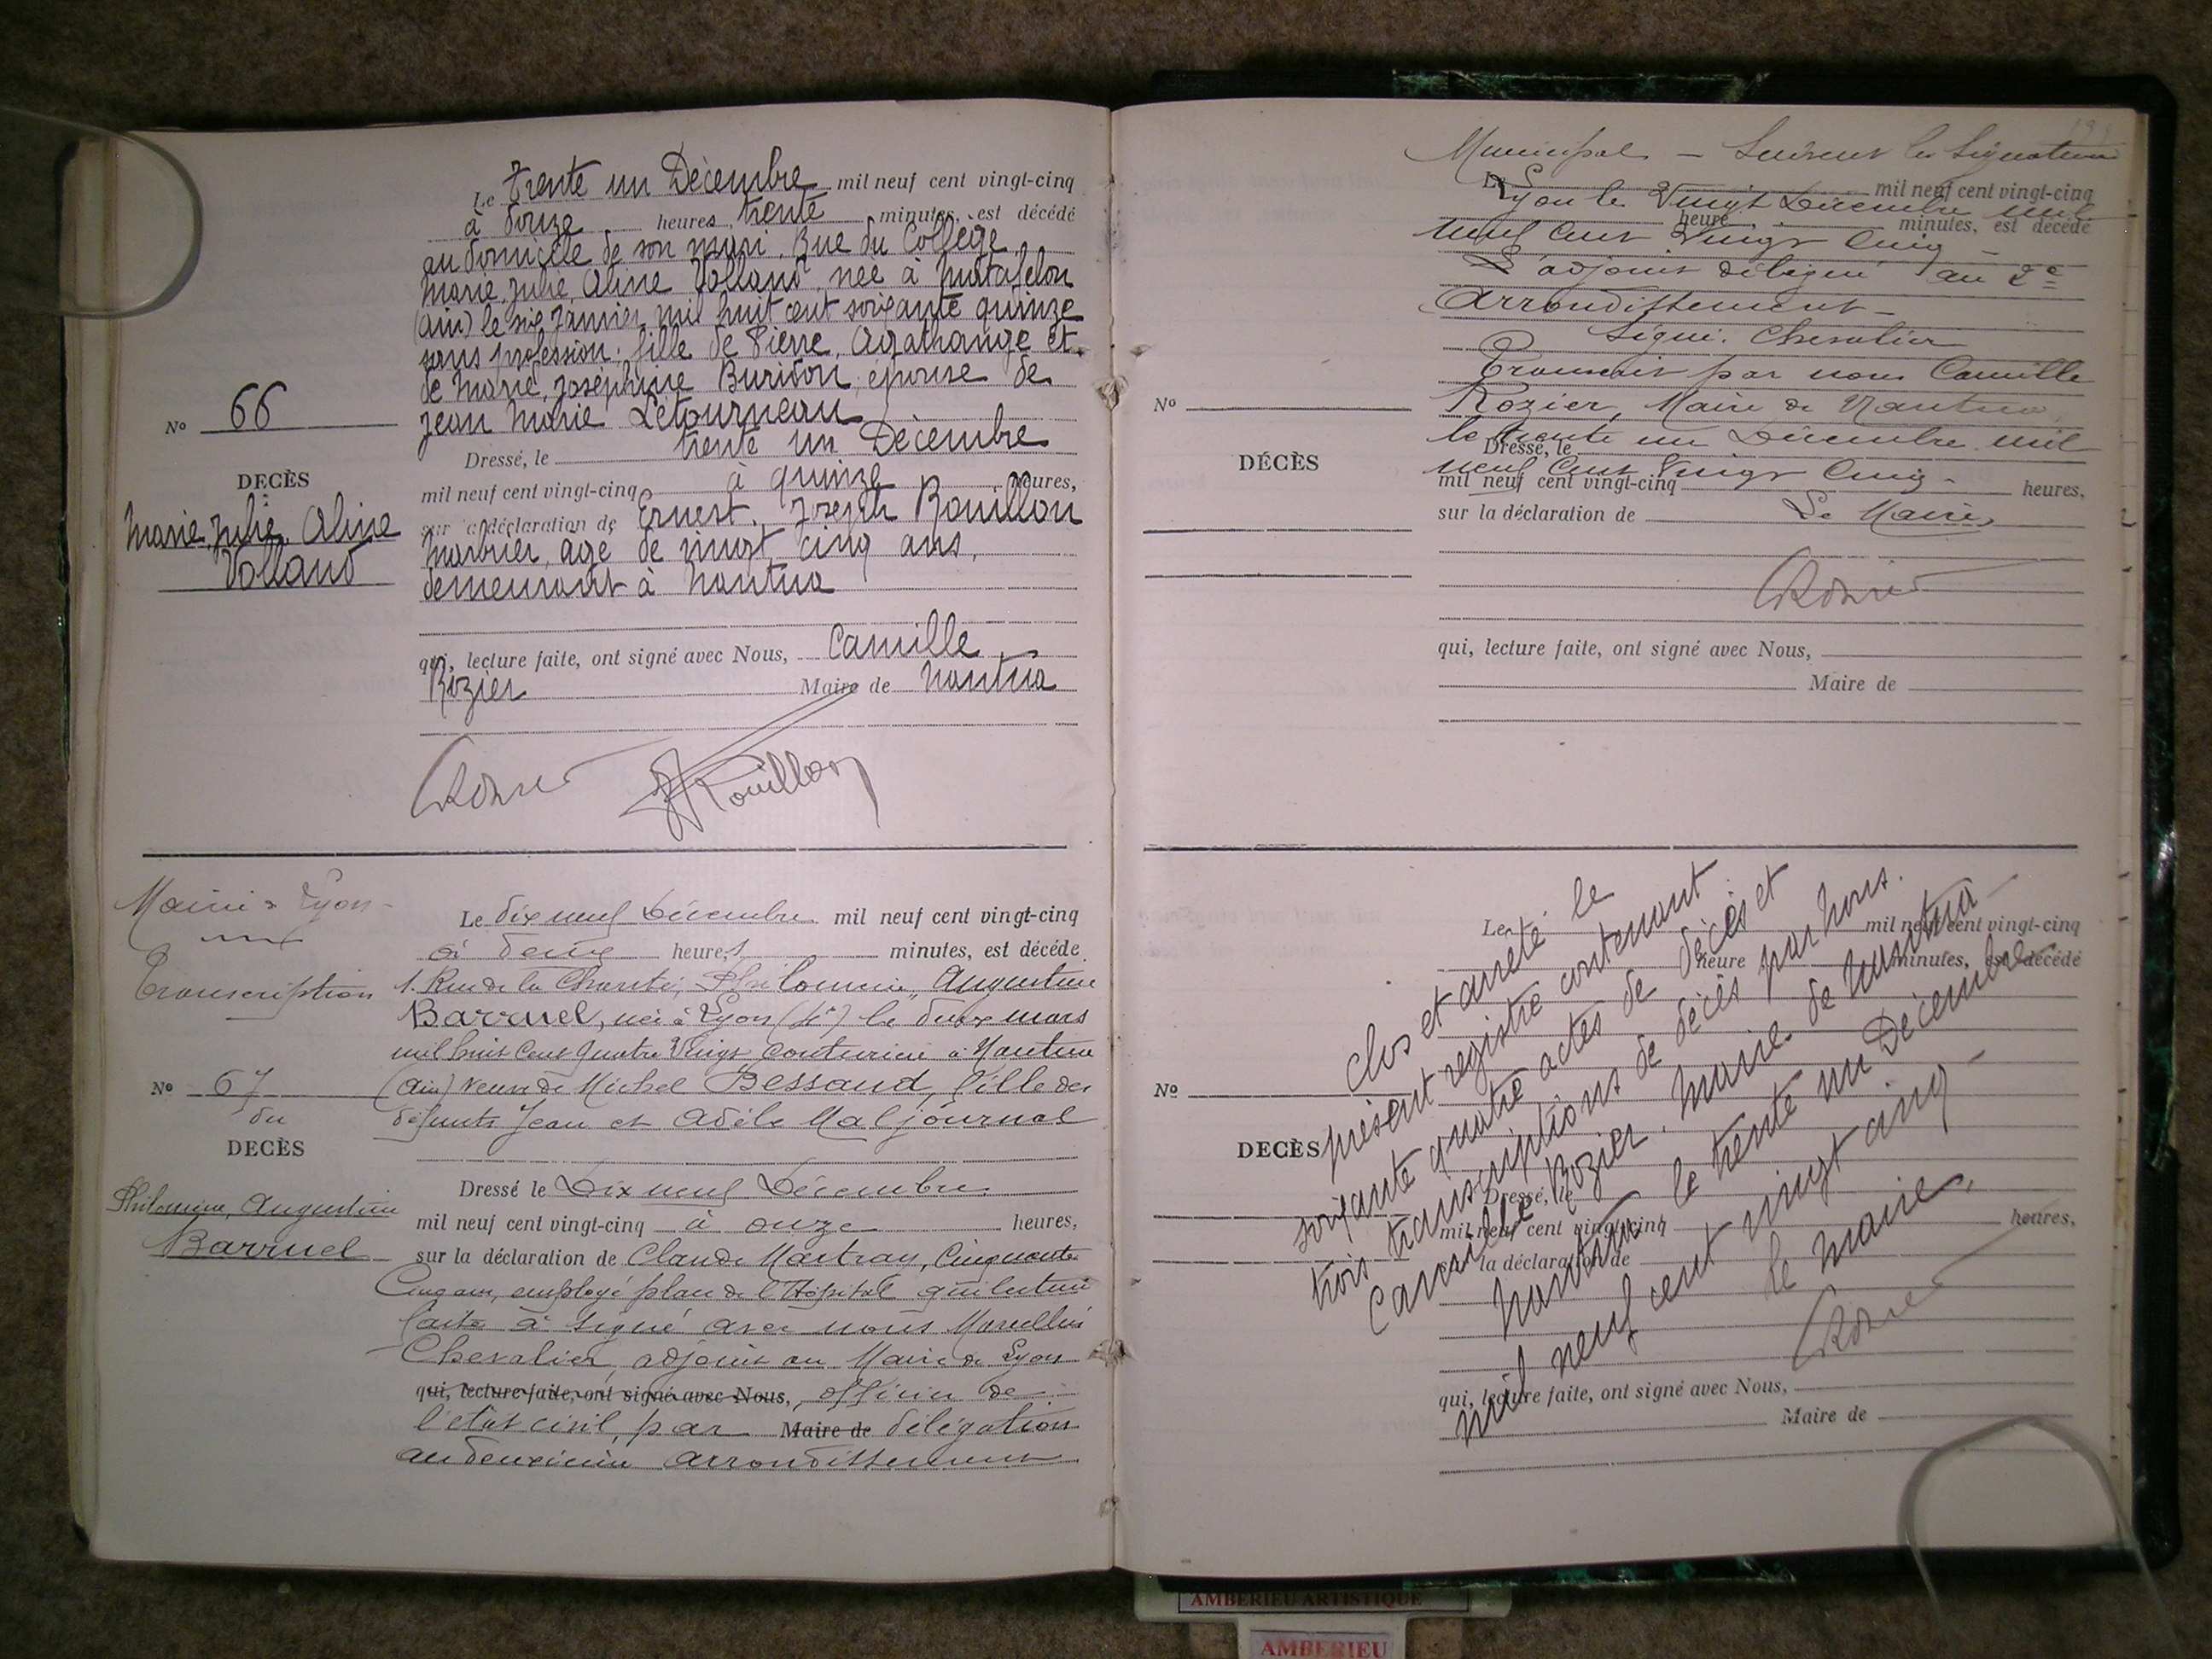 Le trente un Décembre mil neuf cent vingt-cinq
à douze heures, trente minutes, est décédé
au domicile de son mari, Rue du Collège,
Marie, Julie, Aline Volland, née à Matafelon
(Ain) le six Janvier mil huit cent soixante quinze
sans profession, fille de Pierre, Agathange et
de Marie, Joséphine Buridon, épouse de
Jean Marie Letourneau
Dressé, le trente un Décembre
mil neuf cent vingt-cinq à quinze heures,
sur la déclaration de Ernest, Joseph Rouillon
marbrier, agé de vingt cinq ans,
demeurant à Nantua
qui, lecture faite, ont signé avec Nous, Camille
Rozier Maire de Nantua
Nº 66
DECÈS
Marie, Julie, Aline
Volland
Rozier Rouillon
Mairie de Lyon
Transcription
Nº 67
du
DECÈS
Philomène, Augustine
Barruel
Le dix neuf Décembre mil neuf cent vingt-cinq
à deux heures minutes, est décédé
1. Rue de la Charité, Philomène, Augustine
Barruel, née à Lyon (4e) le deux mars
mil huit cent quatre vingt couturière à Nantua
(Ain) veuve de Michel Bessaud, fille des
défunts Jean et Adèle Maljournal
Dressé le Dix neuf Décembre
mil neuf cent vingt-cinq à onze heures,
sur la déclaration de Claude Martray, Cinquante
Cinq ans, employé place de l'Hôpital qui lecture
faite à signé avec nous Marcellin
Chevalier, adjoint au Maire de Lyon
qui, lecture faite, ont signé avec Nous, officier de
l'état civil, par Maire de délégation
au deuxième arrondissement
Municipal - Suivent les signatures
Le mil neuf cent vingt-cinq
Lyon le Vingt Décembre mil
heure minutes, est décédé
neuf Cent Vingt Cinq
L'adjoint délégué au 2e
Arrondissement -
Signé: Chevalier
Transcrit par nous Camille
Rozier, Maire de Nantua,
le trente un Décembre mil
Dressé, le
neuf Cent Vingt Cinq -
mil neuf cent vingt-cinq heures,
sur la déclaration de Le Maire,
Rozier
qui, lecture faite, ont signé avec Nous,
Maire de
Nº
DÉCÈS
Le mil neuf cent vingt-cinq
heure minutes, est décédé
Nº
DECÈS
Dressé, le
mil neuf cent vingt-cinq heures,
sur la déclaration de
qui, lecture faite, ont signé avec Nous,
Maire de
Clos et arrêté le
présent registre contenant
soixante quatre actes de décès et
trois transcriptions de décès par nous.
Camille Rozier, Maire de Nantua -
Nantua le trente un Décembre
mil neuf cent vingt cinq -
le Maire,
Rozier
AMBERIEU ARTISTIQUE
AMBERIEU